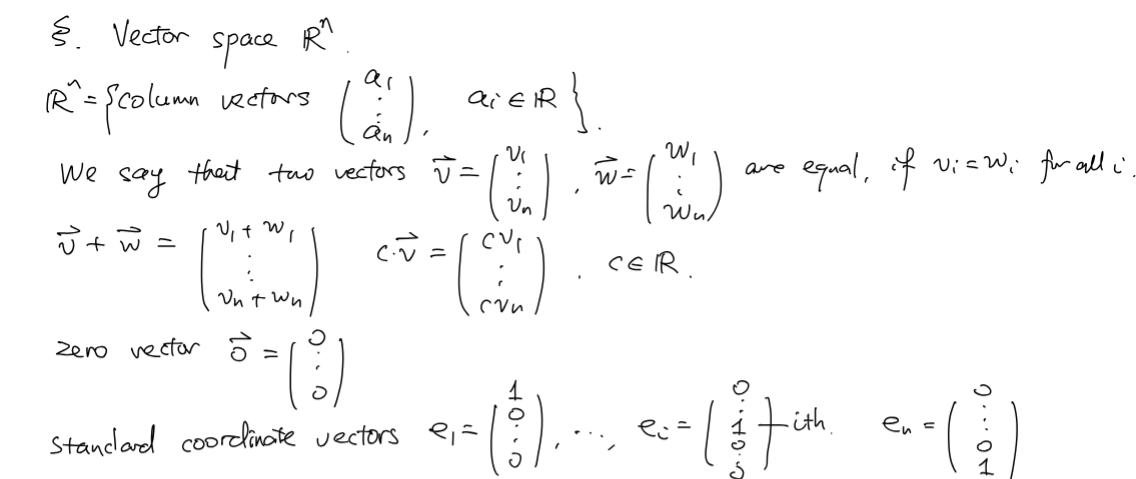 §. Vector space ℝⁿ.
ℝⁿ = {column vectors (a₁ ⋮ aₙ), aᵢ ∈ ℝ}.
We say that two vectors v⃗ = (v₁ ⋮ vₙ), w⃗ = (w₁ ⋮ wₙ) are equal, if vᵢ = wᵢ for all i.
v⃗ + w⃗ = (v₁ + w₁ ⋮ vₙ + wₙ) c·v⃗ = (cv₁ ⋮ cvₙ), c ∈ ℝ.
zero vector 0⃗ = (0 ⋮ 0)
standard coordinate vectors e₁ = (1 0 ⋮ 0), ..., eᵢ = (0 ⋮ 1 0 ⋮ 0) ith. eₙ = (0 ⋮ 0 1)